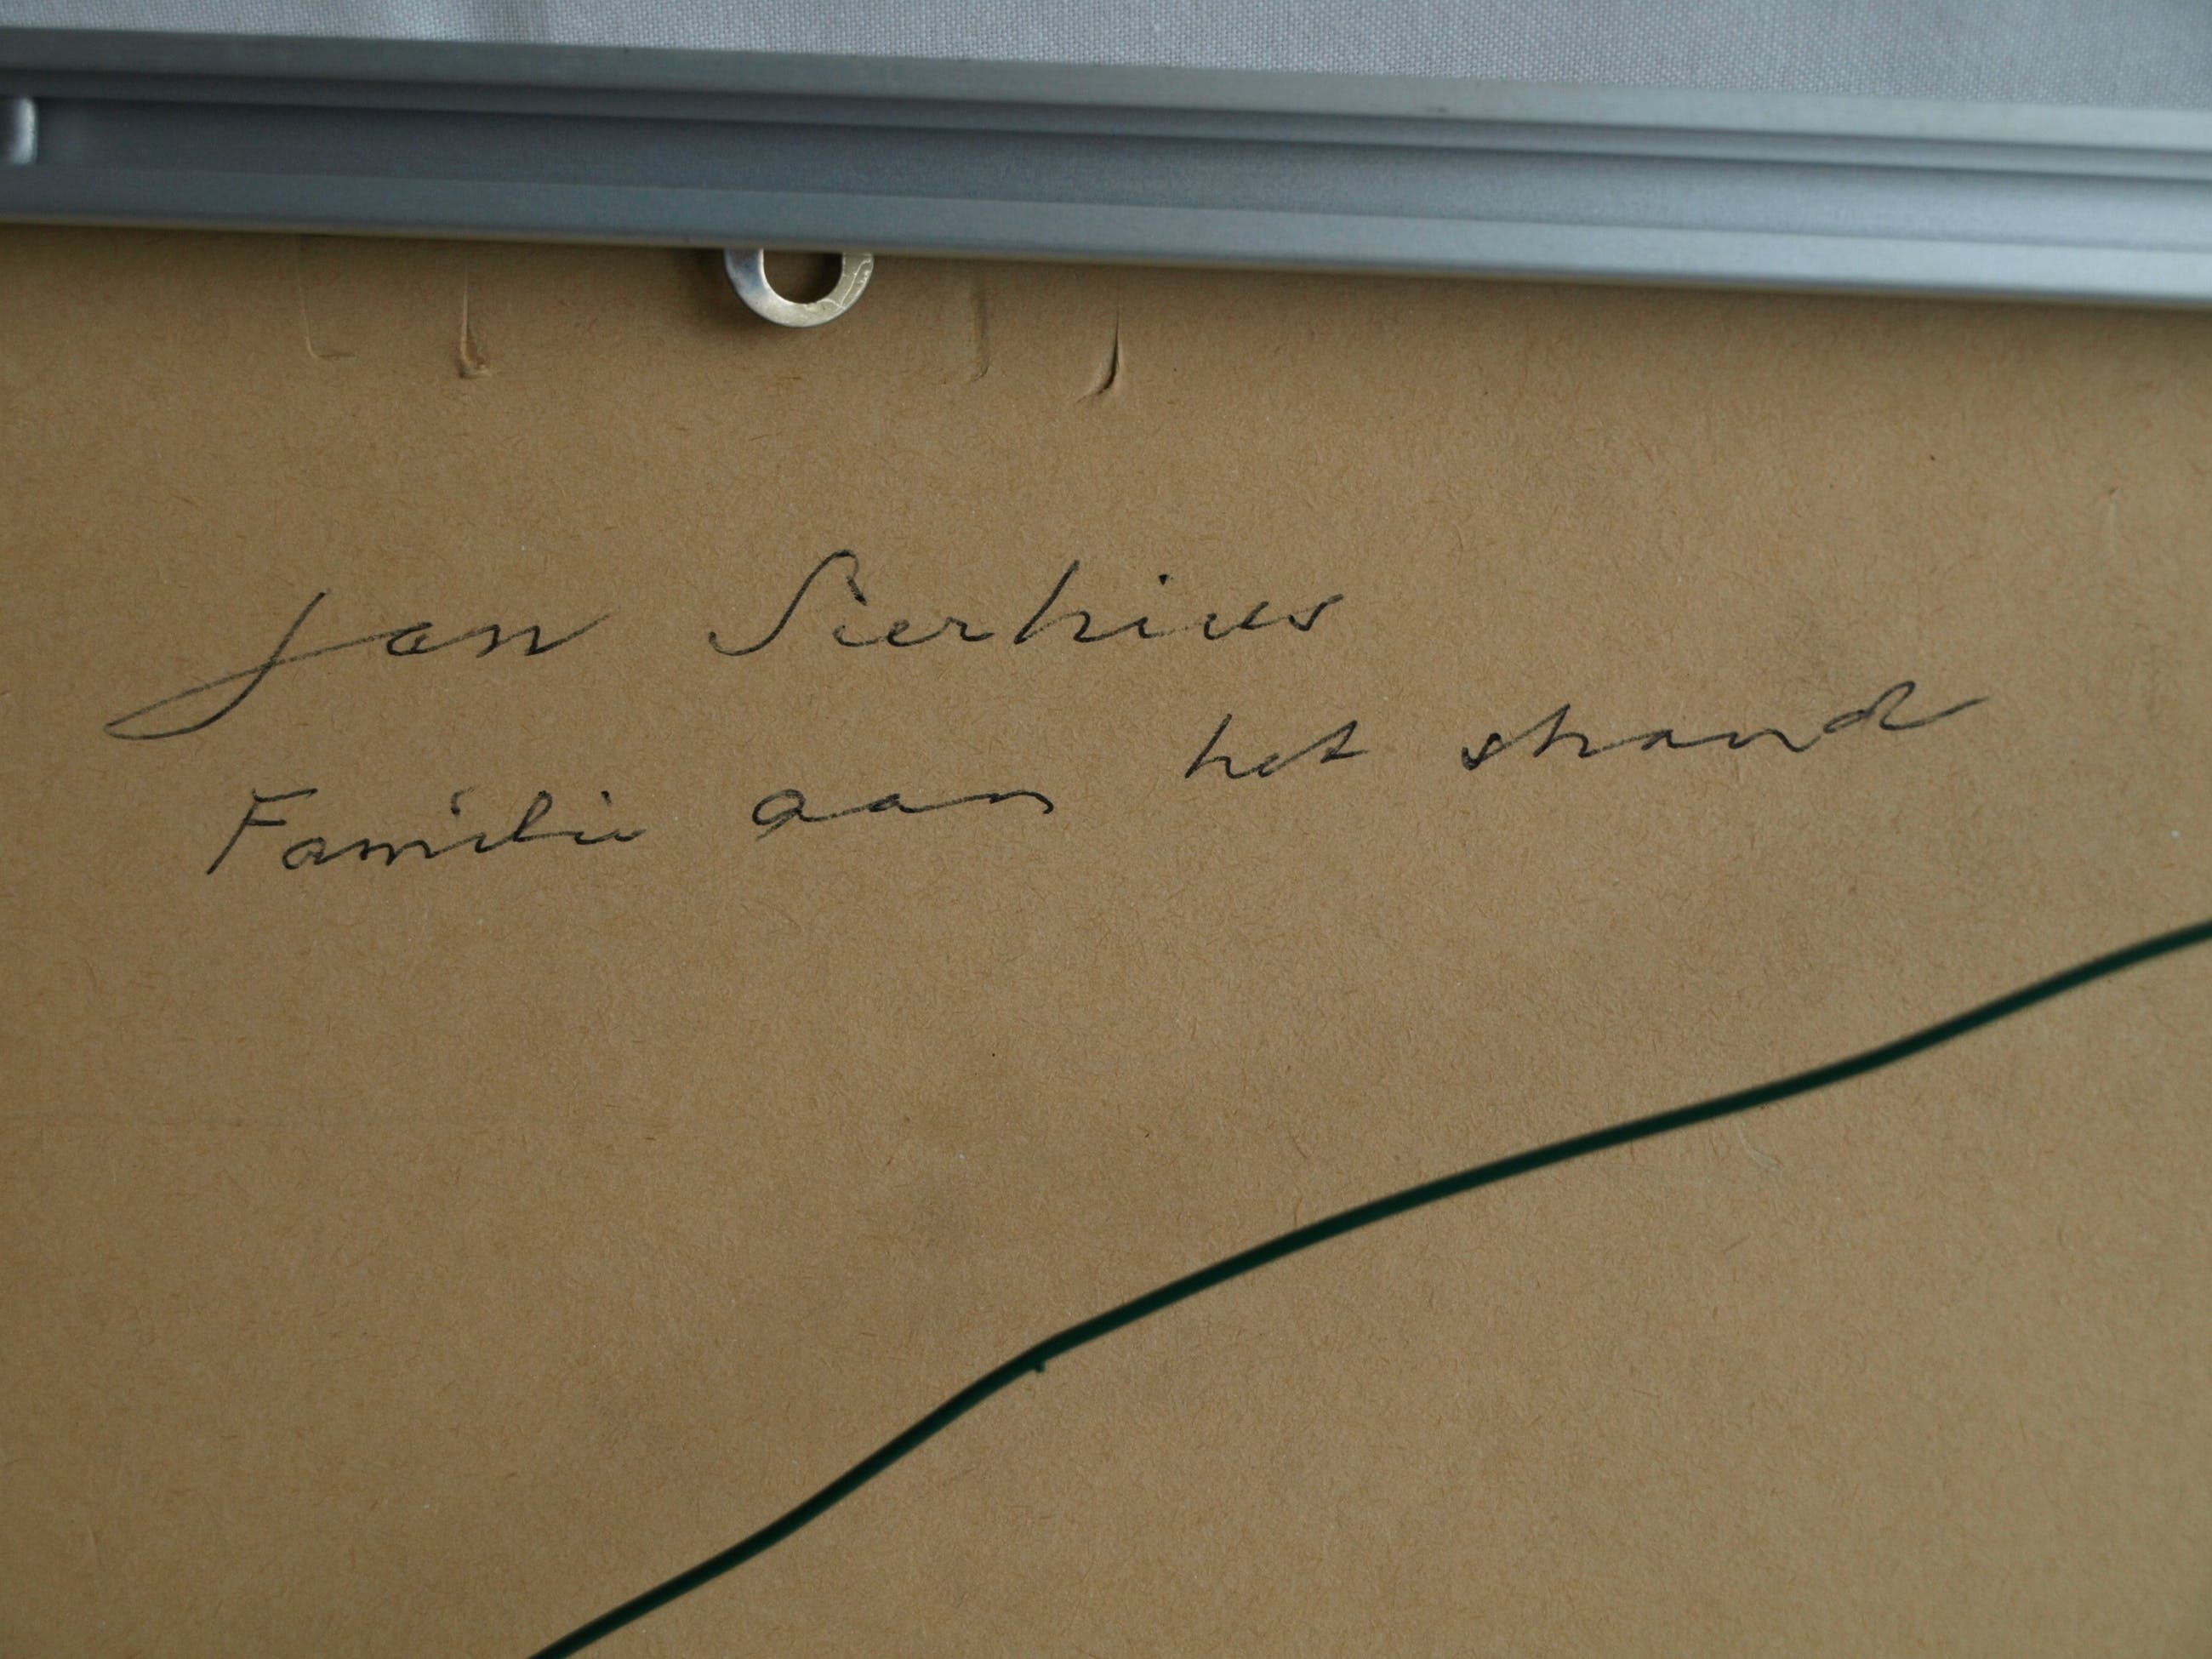 Jan Sierhuis
Familie aan het strand